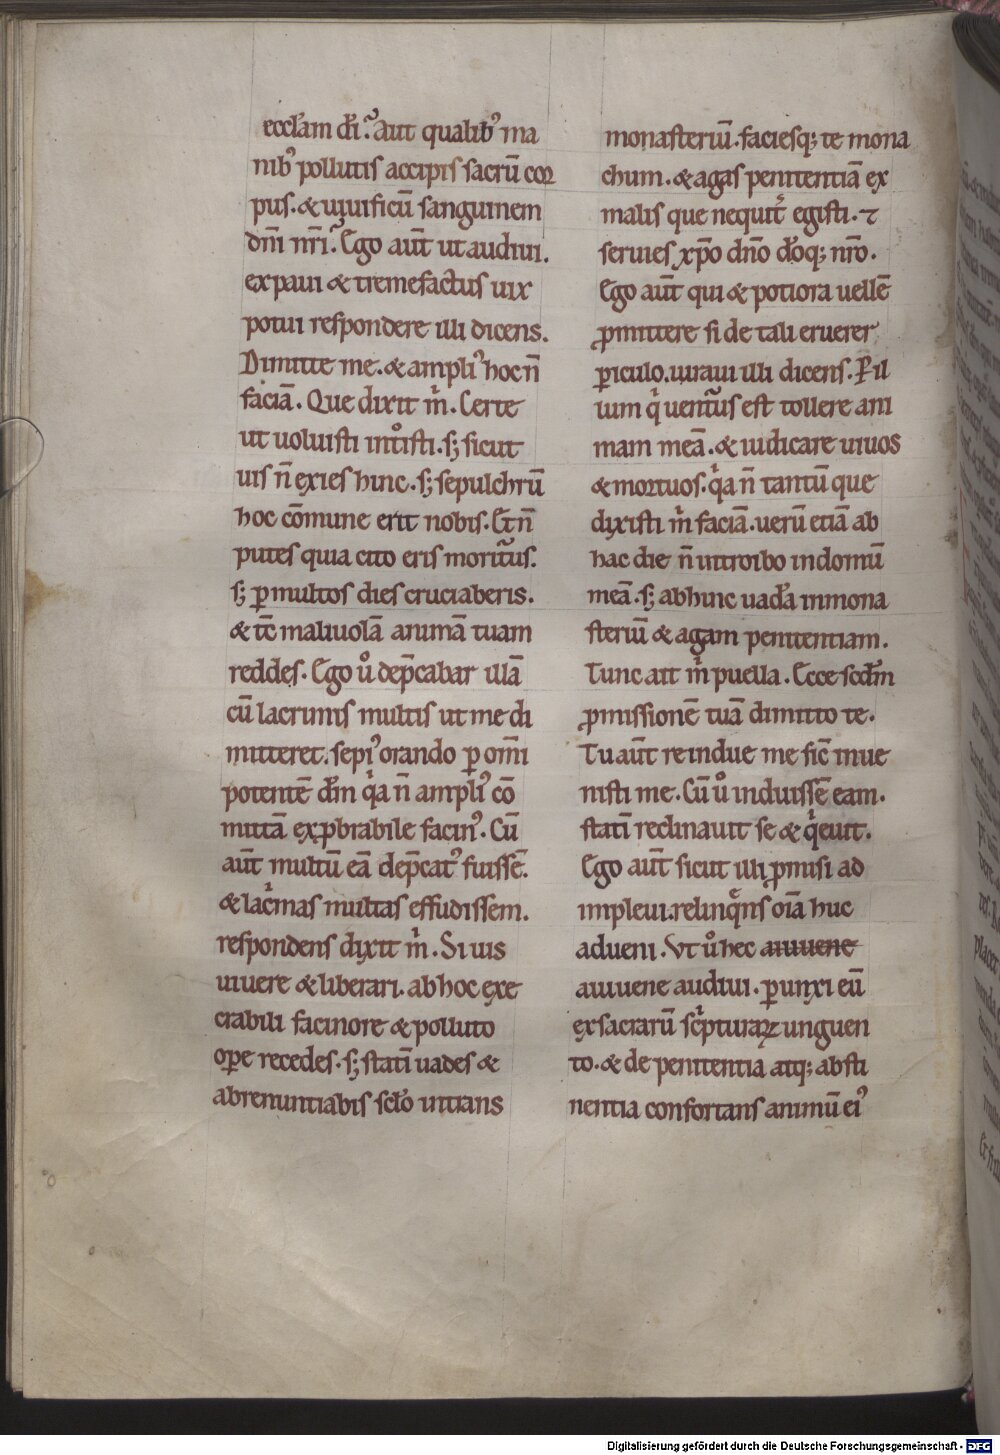 eccl̄am di̅? aut qualib᷒ ma
nib᷒ pollutis accipis sacrū cor
pus. & uiuificū sanguinem
dn̄i nr̄i? Ego aūt ut audiui.
expaui & tremefactus uix
potui respondere illi dicens.
Dimitte me. & ampli᷒ hoc n̄
faciā. Que dixit m̍. Certe
ut uoluisti int̊isti. s; sicut
uis n̄ exies hinc. s; sepulchrū
hoc cōmune erit nobis. Et n̄
putes quia cito eris morit᷑us.
s; ꝑ multos dies cruciaberis.
& tc̄ maliuolā animā tuam
reddes. Ego ů dep̄cabar illā
cū lacrimis multis ut me di
mitteret. sepi᷒ orando ꝑ omi̅
potentē dm̄ qͥa n̄ ampli᷒ cō
mittā exꝓbrabile facin᷒. Cū
aūt multū eā dep̄cat᷒ fuissē.
& lacͥmas multas effudissem.
respondens dixit m̍. Si uis
uiuere & liberari. ab hoc exe
crabili facinore & polluto
oꝑe recedes. s; stati̅ uades &
abrenuntiabis sclo̅ intrans
monasteriū. faciesq; te mona
chum. & agas penitentiā ex
malis que nequit᷑ egisti. ⁊
seruies xp̄o dn̄o do̅q; nr̄o.
Ego aūt qui & potiora uellē
ꝓmittere si de tali eruerer
ꝑiculo. iuraui illi dicens. P̲ fil
ium qͥ uent᷑us est tollere ani
mam meā. & iudicare uiuos
& mortuos. qͥa n̄ tantū que
dixisti m̍ faciā. uerū etiā ab
hac die n̄ introibo in domū
meā. s; ab hinc uada̅ in mona
steriū & agam penitentiam.
Tunc ait m̍ puella. Ecce scdm̄
ꝓmissionē tuā dimitto te.
Tu aūt reindue me sic̄ inue
nisti me. Cū ů induissē eam.
stati̅ reclinauit se & qͥeuit.
Ego aūt sicut illi ꝓmisi ad
impleui. relinqͤns oīa huc
adueni. Vt ů hec aiuuene
a iuuene audiui. ꝑunxi eū
ex sacrarū scͥpturaꝝ unguen
to. & de penitentia atq; absti
nentia confortans animū ei᷒
Digitalisierung gefördert durch die Deutsche Forschungsgemeinschaft - DFG